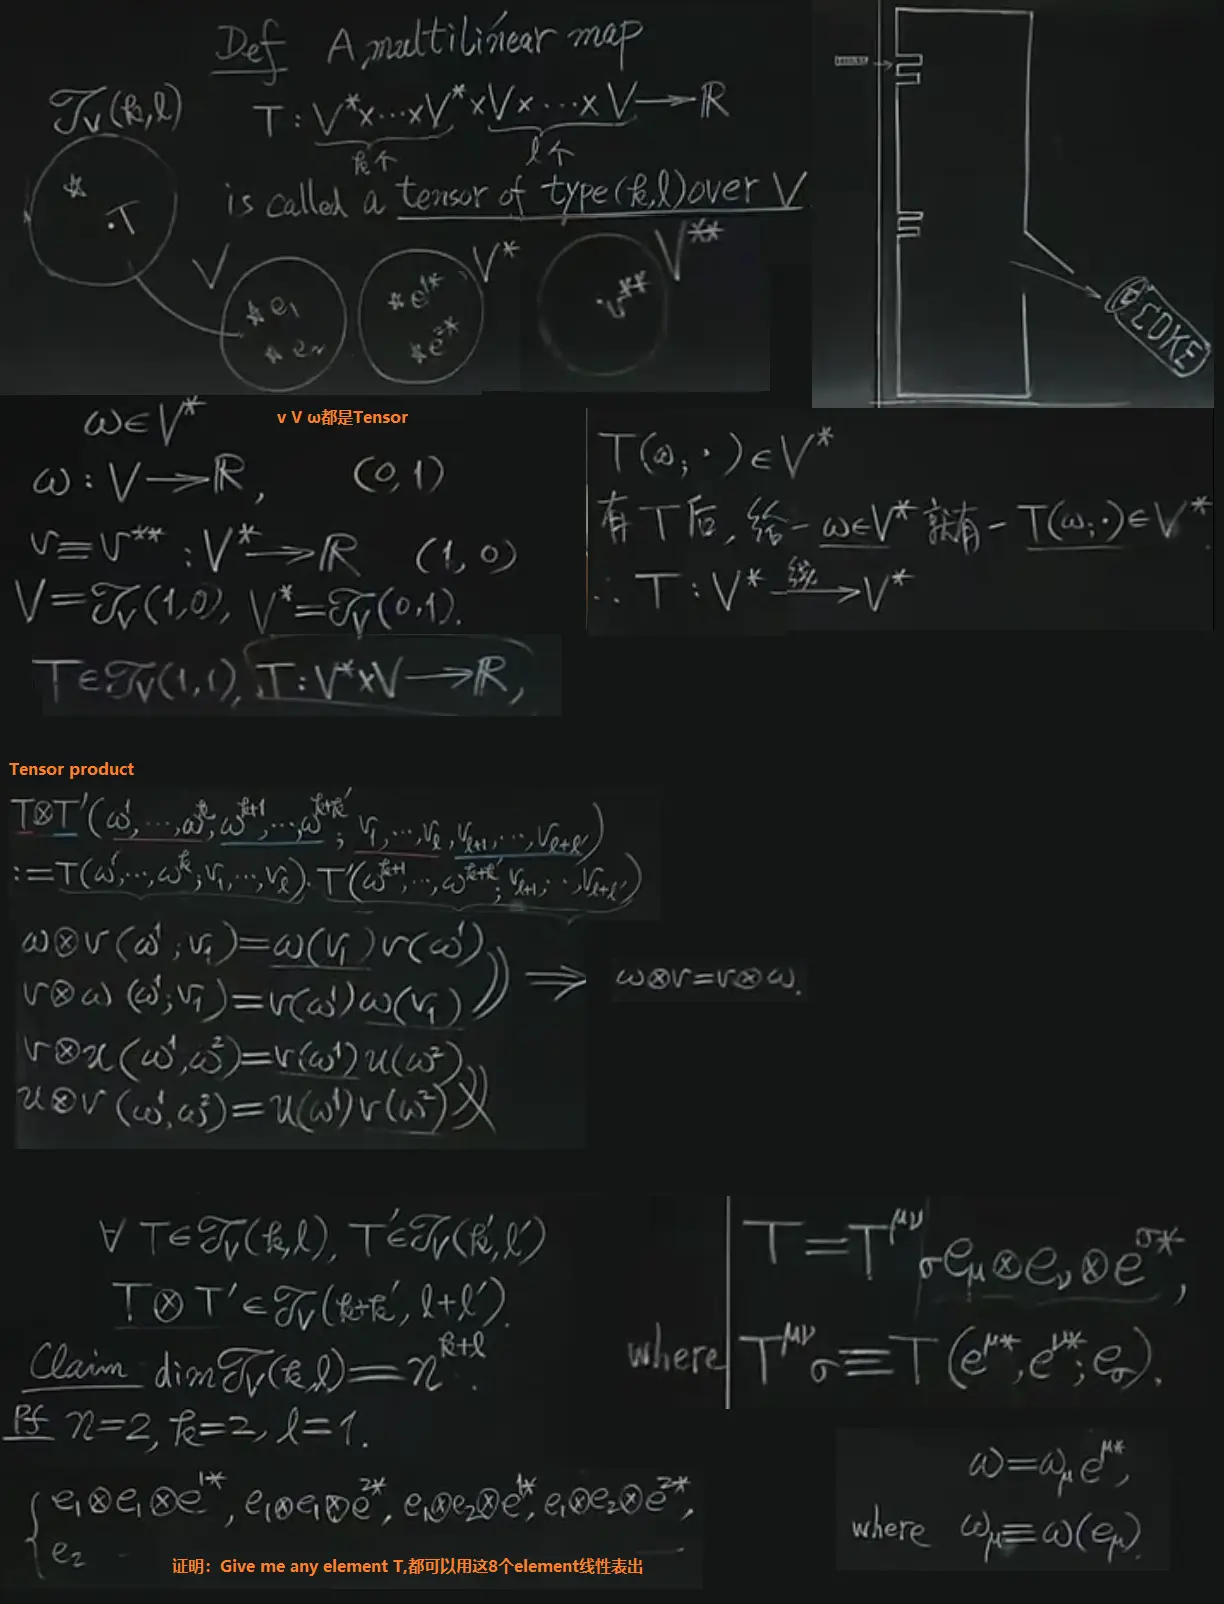 Def A multilinear map
𝒯_V(k,l)
T : V*×⋯×V*×V×⋯×V ⟶ ℝ
k个 l个
is called a tensor of type (k,l) over V
·T
V V* V**
e₁ e^{1*} v**
e₂ e^{2*}
COKE
ω∈V*
v V ω都是Tensor
ω : V ⟶ ℝ, (0,1)
v≡v** : V* ⟶ ℝ (1,0)
V=𝒯_V(1,0), V*=𝒯_V(0,1).
T∈𝒯_V(1,1), T : V*×V ⟶ ℝ,
T(ω; ·)∈V*
有T后, 给一 ω∈V* 就有一 T(ω; ·)∈V*.
∴ T : V* 线⟶ V*
Tensor product
T⊗T′(ω¹,⋯,ω^k,ω^{k+1},⋯,ω^{k+k′}; v₁,⋯,v_l,v_{l+1},⋯,v_{l+l′})
:=T(ω¹,⋯,ω^k; v₁,⋯,v_l)·T′(ω^{k+1},⋯,ω^{k+k′}; v_{l+1},⋯,v_{l+l′})
ω⊗v(ω¹; v₁)=ω(v₁)v(ω¹)
v⊗ω(ω¹; v₁)=v(ω¹)ω(v₁)
⟹ ω⊗v=v⊗ω.
v⊗u(ω¹,ω²)=v(ω¹)u(ω²)
u⊗v(ω¹,ω²)=u(ω¹)v(ω²)
∀ T∈𝒯_V(k,l), T′∈𝒯_V(k′,l′)
T⊗T′∈𝒯_V(k+k′, l+l′).
Claim dim𝒯_V(k,l)=n^{k+l}.
Pf n=2, k=2, l=1.
{ e₁⊗e₁⊗e^{1*}, e₁⊗e₁⊗e^{2*}, e₁⊗e₂⊗e^{1*}, e₁⊗e₂⊗e^{2*},
e₂
证明：Give me any element T,都可以用这8个element线性表出
T=T^{μν}_σ e_μ⊗e_ν⊗e^{σ*},
where T^{μν}_σ≡T(e^{μ*},e^{ν*}; e_σ).
ω=ω_μ e^{μ*},
where ω_μ≡ω(e_μ).